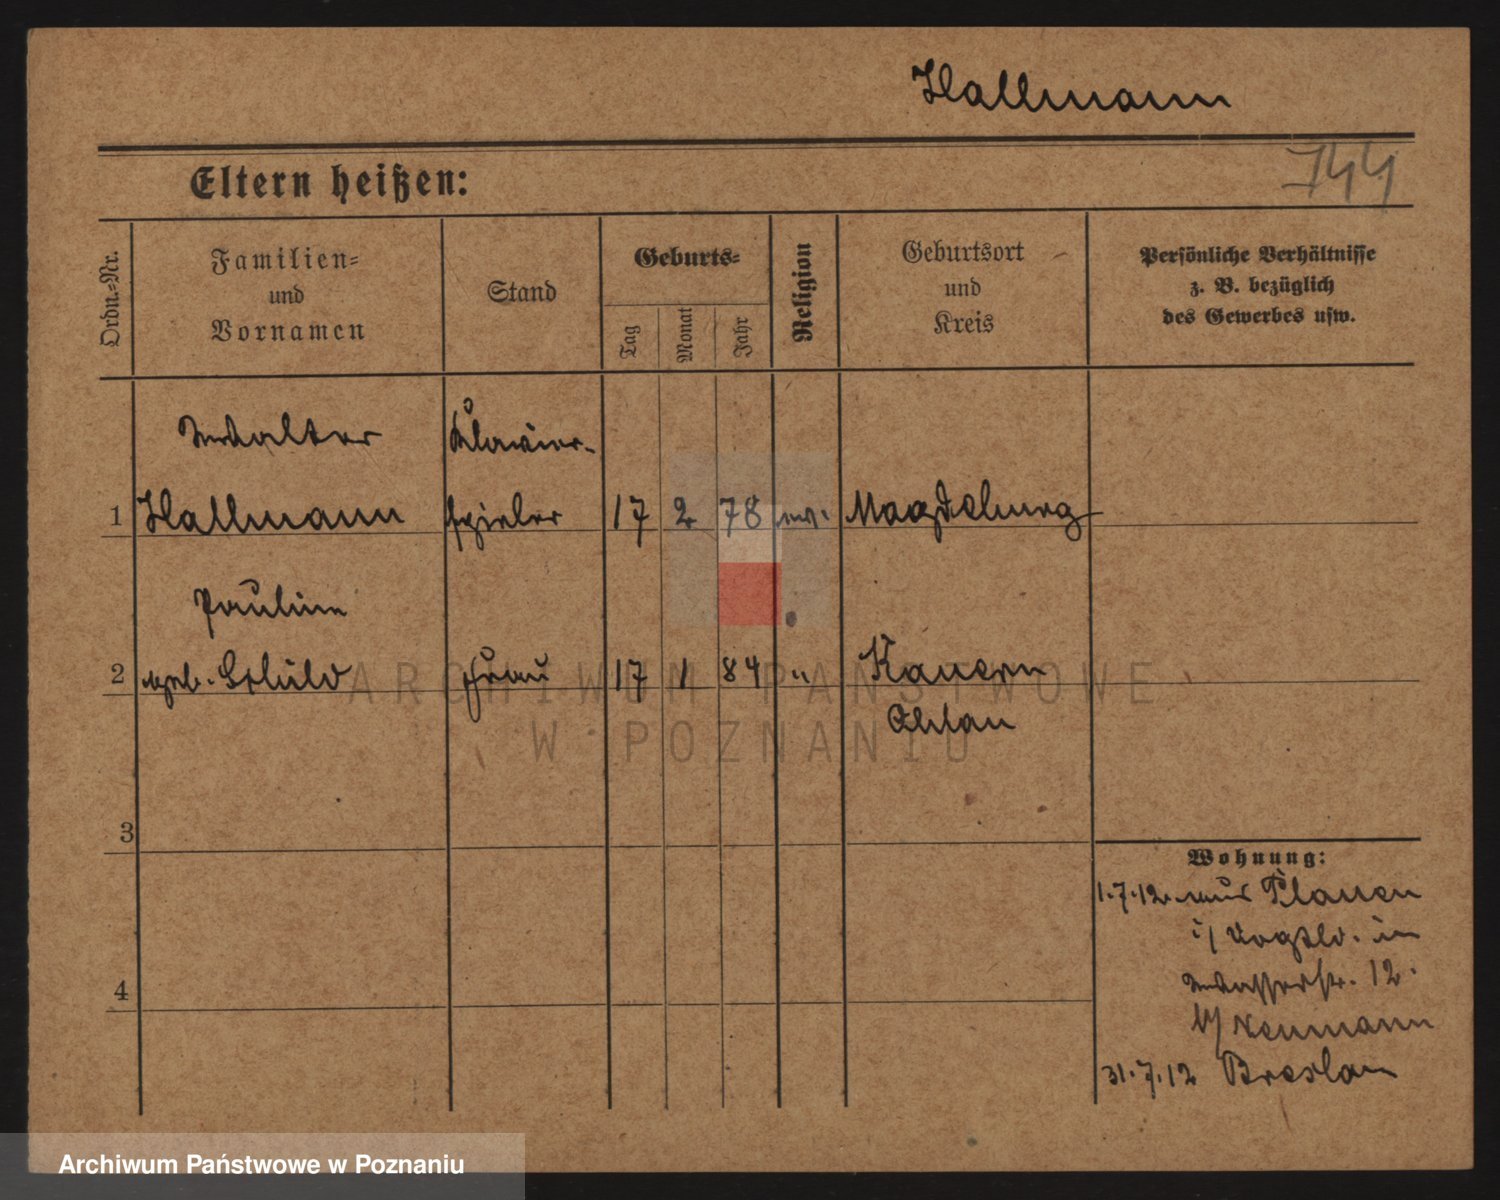 Hallmann
744
Eltern heißen:
Ordn.=Nr.
Familien=
und
Vornamen
Stand
Geburts=
Tag
Monat
Jahr
Religion
Geburtsort
und
Kreis
Persönliche Verhältnisse
z. B. bezüglich
des Gewerbes usw.
Walter Klavier-
1 Hallmann spieler 17 2 78 ev. Magdeburg
Pauline
2 geb. Schild Frau 17 1 84 " Kauern
Ohlau
3
4
Wohnung:
1.7.12. aus Plauen
i/ Vogtld. in
Wasserstr. 12.
b/ Neumann
31.7.12 Breslau
ARCHIWUM PAŃSTWOWE
W POZNANIU
Archiwum Państwowe w Poznaniu